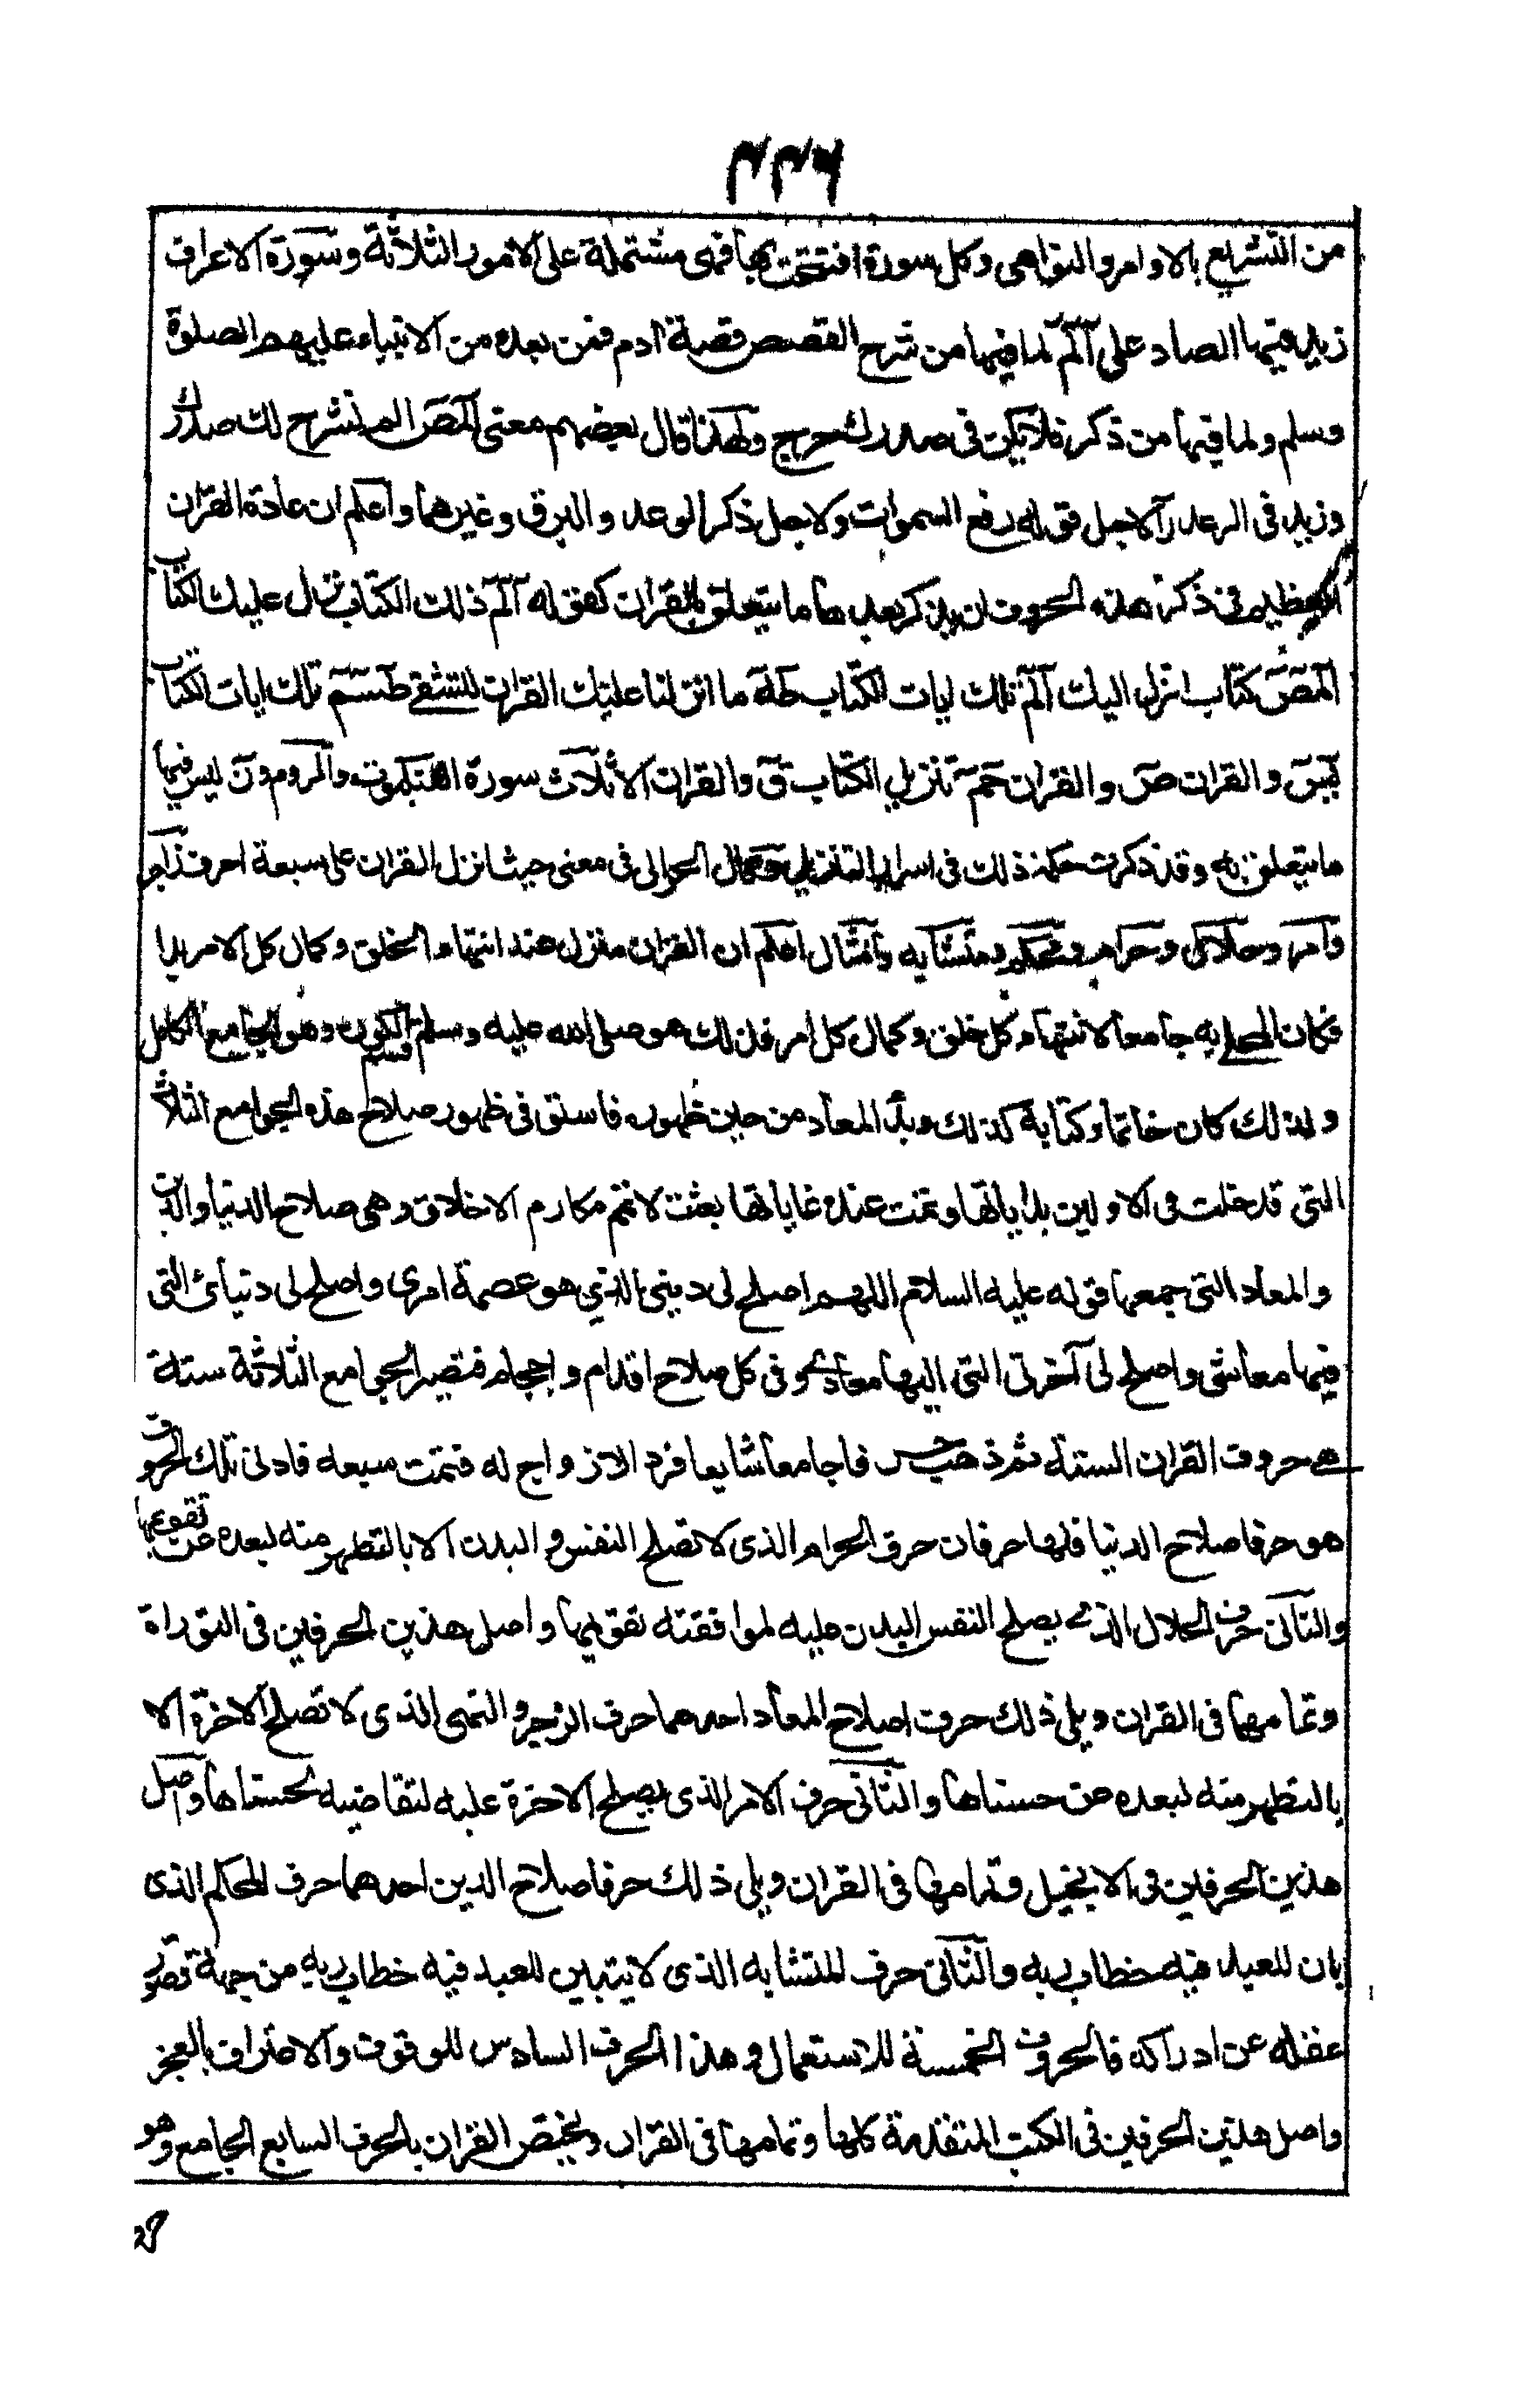 ٣٣٣
من التشريع بالاوامر والنواهى وكل سورة افتتحت بها فهى مشتملة على الامور الثلاثة وسورة الاعراف
زيد فيها الصاد على الم لما فيها من شرح القصص قصة ادم فمن بعده من الانبياء عليهم الصلوة
وسلم ولما فيها من ذكر فلا يكن فى صدرك حرج ولهذا قال بعضهم معنى المص الم نشرح لك صدرك
وزيد فى الرعد را لاجل قوله رفع السموات ولاجل ذكر الوعد والبرق وغيرهما واعلم ان عادة القران
العظيم فى ذكر هذه الحروف ان يذكر بعدها ما يتعلق بالقران كقوله الم ذلك الكتاب نزل عليك الكتاب
المص كتاب انزل اليك الم تلك ايات الكتاب طه ما انزلنا عليك القران للتشقى طسم تلك ايات الكتاب
يس والقران ص والقران حم تنزيل الكتاب ق والقران الا ثلاث سورة العنكبوت والروم ون ليس فيها
ما يتعلق به وقد ذكرت حكمة ذلك فى اسرار التنزيل وقال الحرالى فى معنى حيث انزل القران على سبعة احرف زاجر
وامر وحلال وحرام ومحكم ومتشابه وامثال اعلم ان القران منزل عند انتهاء الخلق وكمال كل الامر بدا
فكان المحلى به جامعا لانتهاء كل خلق وكمال كل امر فلذلك هو صلى الله عليه وسلم قسيم الكون وهو الجامع الكامل
ولذلك كان خاتما وكتابه كذلك وبدأ المعاد من حين ظهوره فاستوفى ظهور صلاح هذه الجوامع الثلاث
التى قد خلت فى الاولين بداياتها وتمت عنده غاياتها بعثت لاتمم مكارم الاخلاق وهى صلاح الدنيا والدين
والمعاد التى جمعها قوله عليه السلام اللهم اصلح لى دينى الذي هو عصمة امرى واصلح لى دنياى التى
فيها معاشى واصلح لى آخرتى التى اليها معادى وفى كل صلاح اقدام واحجام فتصير الجوامع الثلاثة ستة
هى حروف القران الستة ثم ذهب فاجامعا شايعا فرد الازواج له فتمت سبعه فادنى تلك الحروف
هو حرفا صلاح الدنيا فلها حرفان حرف الحرام الذى لا تصلح النفس والبدن الا بالتطهر منه لبعده عن تقويمها
والثانى حرف الحلال الذى يصلح النفس البدن عليه لموافقته تقويمها واصل هذين الحرفين فى التوراة
وتمامهما فى القران ويلى ذلك حرف اصلاح المعاد احدهما حرف الزجر والنهى الذى لا تصلح الاخرة الا
بالتطهر منه لبعده عن حسناها والثانى حرف الامر الذى يصلح الاخرة عليه لتقاضيه لحسناها واصل
هذين الحرفين فى الانجيل وتمامها فى القران ويلى ذلك حرفا صلاح الدين احدهما حرف المحكم الذى
بان للعبد فيه خطاب ربه والثانى حرف المتشابه الذى لا يتبين للعبد فيه خطاب ربه من جهة قصور
عقله عن ادراكه فالحروف الخمسة للاستعمال وهذا الحرف السادس للوقوف والاعتراف بالعجز
واصل هذين الحرفين فى الكتب المتقدمة كلها وتمامها فى القران ويختص القران بالحرف السابع الجامع وهو